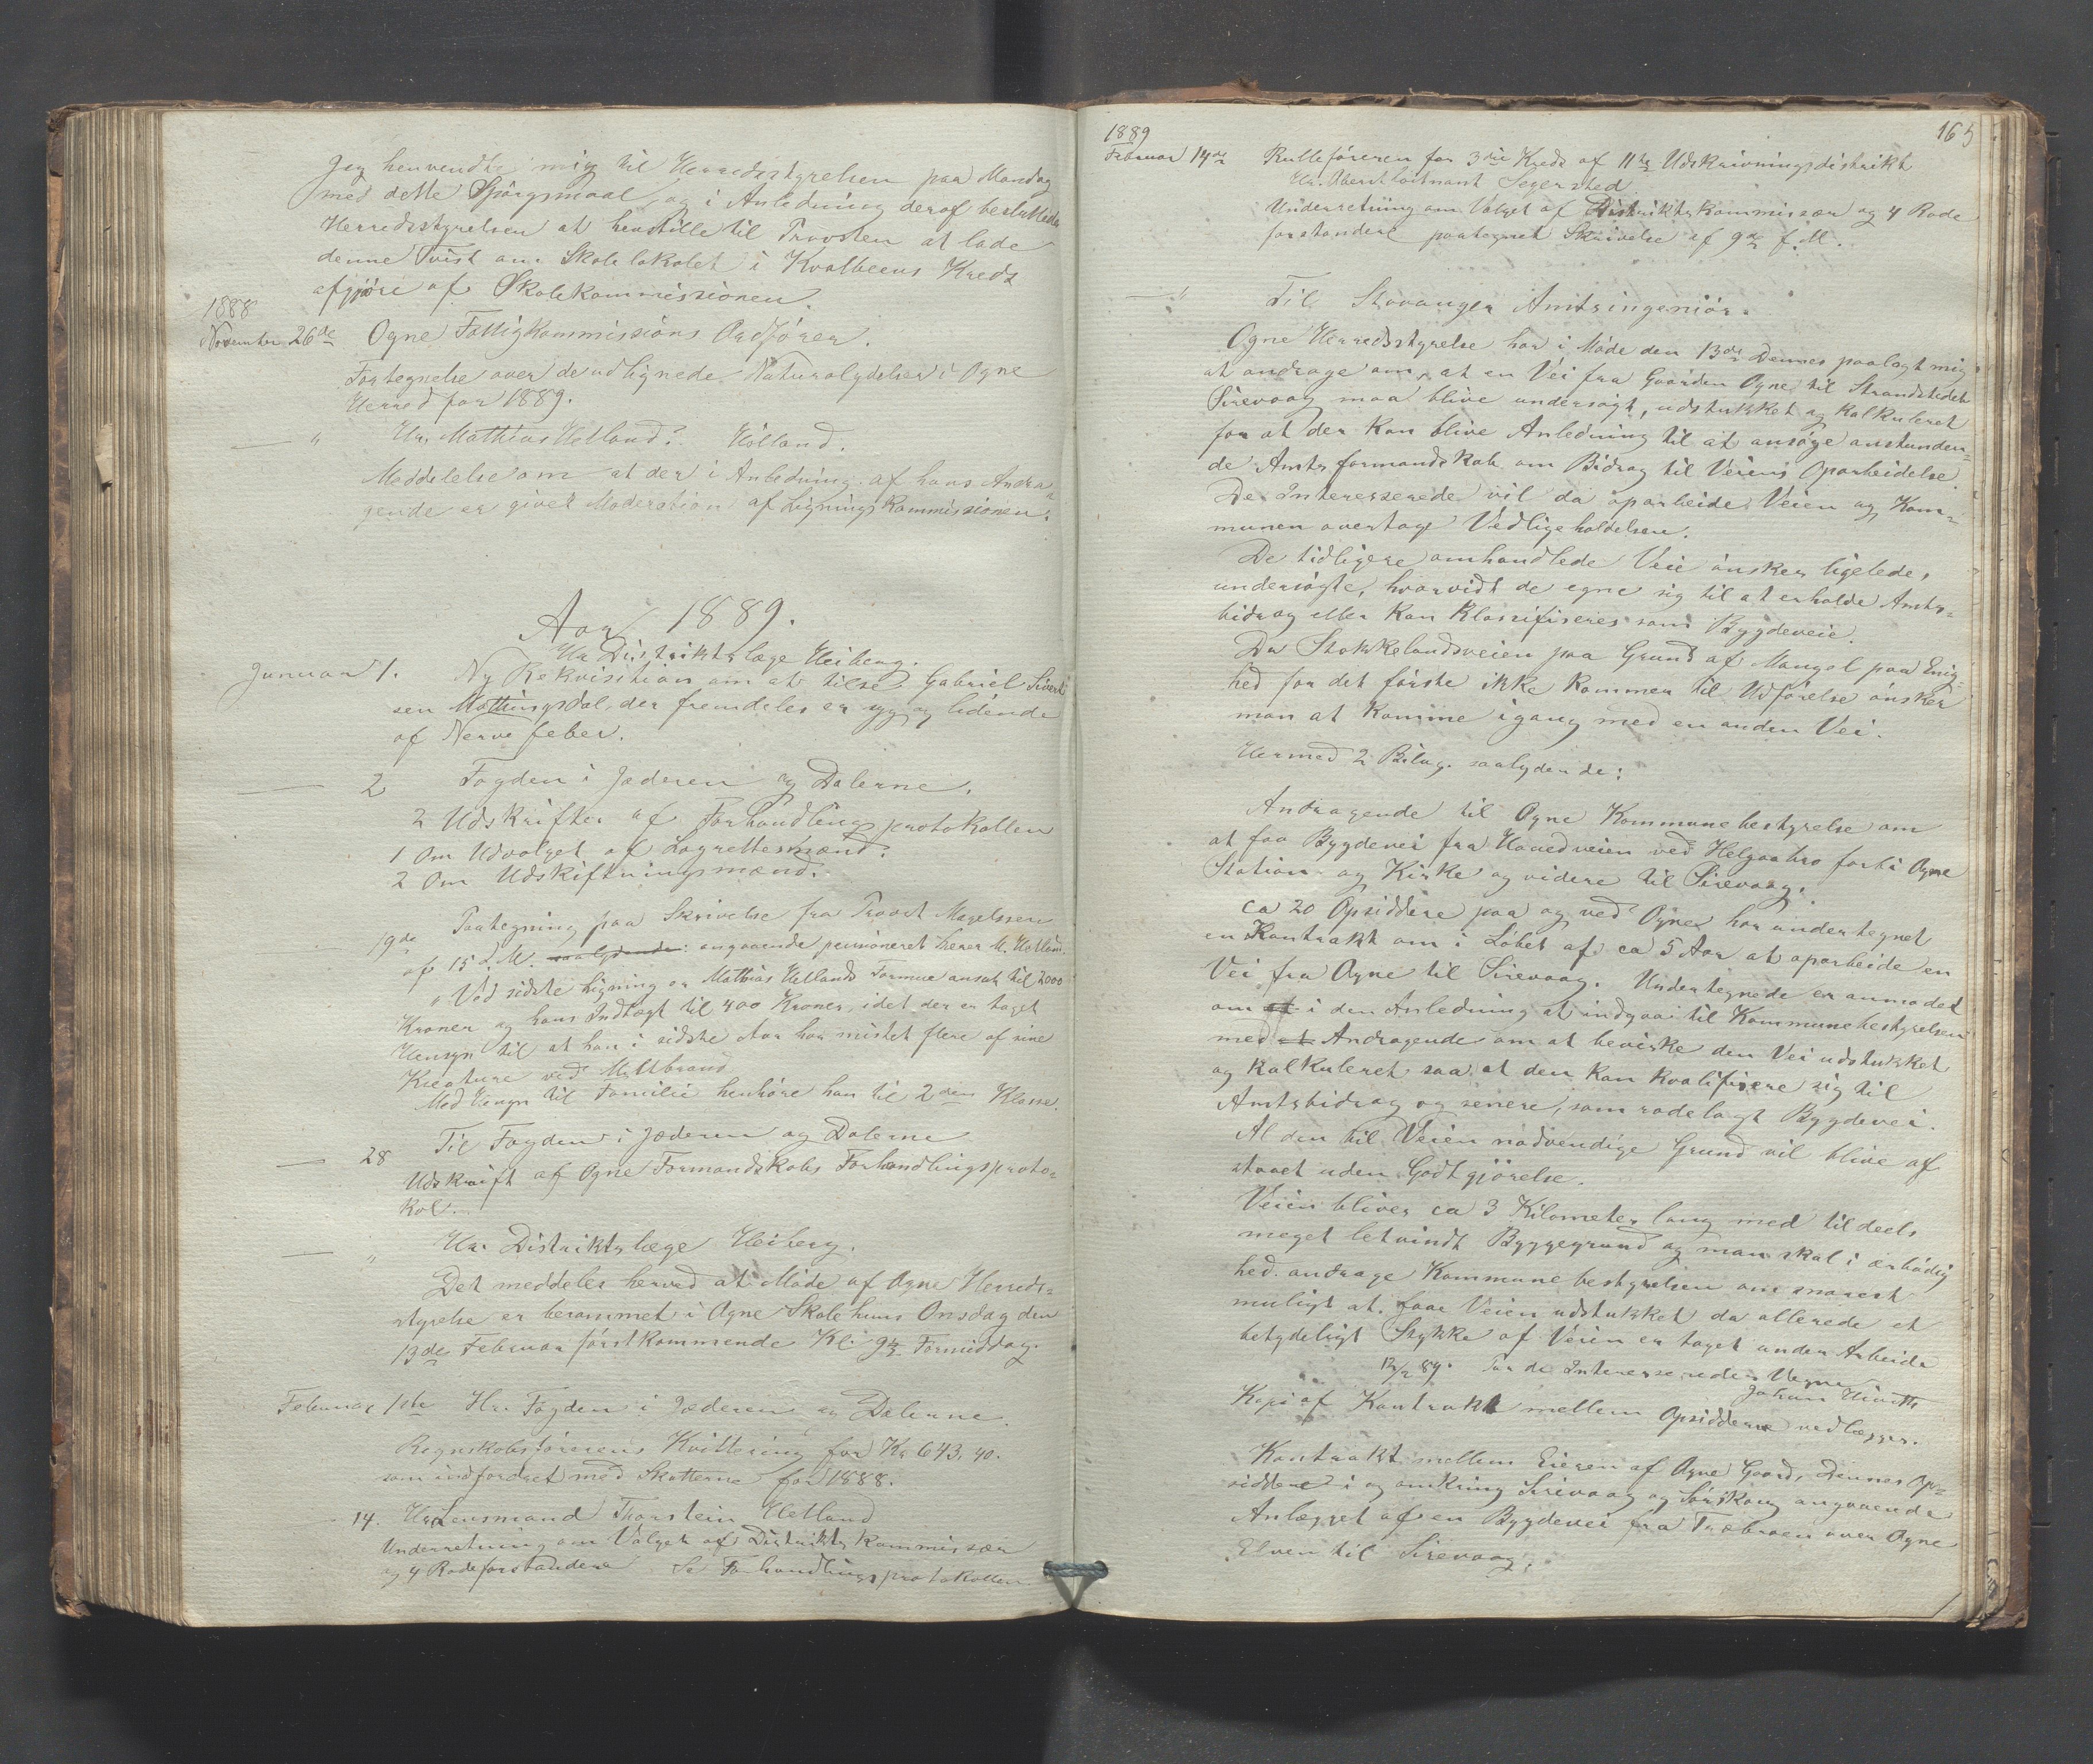 Jeg henvendte mig til Herredsstyrelsen paa Mandag
med dette Spörgsmaal, og i Anledning deraf besluttede
Herredsstyrelsen at henstille til Provsten at lade
denne Tvist om Skolelokalet i Kvalbeens Kreds
afgjöre af Skolekommissionen.
1888
November 26de Ogne Fattigkommissions Ordförer.
Fortegnelse over de udlignede Naturalydelser i Ogne
Herred for 1889.
— " Hr. Mathias Hetland. Hölland.
Meddelelse om at der i Anledning af hans Andra-
gende er givet Moderation af Ligningskommissionen.
Aar 1889.
Hr Distriktslæge Heiberg.
Januar 1. Ny Rekvisition om at tilse Gabriel Sivert
sen Mattingsdal, der fremdeles er syg og lidende
af Nerve feber.
— 2 Fogden i Jæderen og Dalerne.
2 Udskrifter af Forhandlingsprotokollen
1 Om Udvalget af Lagrettesmænd.
2 Om Udskiftningsmænd.
19de Paategning paa Skrivelse fra Provst Magelssen
af 15 d. M. saalydende: angaaende pensioneret Lærer M. Hetland.
" Ved sidste Ligning er Mathias Hetlands Formue ansat til 2000
Kroner og hans Indtægt til 400 Kroner, idet der er taget
Hensyn til at han i sidste Aar har mistet flere af sine
Kreature ved Miltbrand
Med Hensyn til Familie henhöre han til 2den Klasse.
— 28 Til Fogden i Jæderen og Dalerne
Udskrift af Ogne Formandskabs Forhandlingsproto-
kol.
— " Hr. Distriktslæge Heiberg.
Det meddeles herved at Möde af Ogne Herreds-
styrelse er berammet i Ogne Skolehuus Onsdag den
13de Februar förstkommende Kl. 9 1/2 Formiddag.
Februar 1ste Hr. Fogden i Jæderen og Dalerne.
Regnskabsförerens Kvittering for Kr 643,40.
som indfordret med Skatterne for 1888.
14. Hr Lensmand Thorstein Hetland
Underretning om Valget af Distriktskommissær
og 4 Rodeforstandere Se Forhandlingsprotokollen
1889 165
Februar 14de Rulleföreren for 3die Kreds af 11te Udskrivningsdistrikt
Hr. Oberstlöitnant Segersted
Underretning om Valget af Distriktskommissær og 4 Rode
forstandere paategnet Skrivelse af 9de f. M.
— " Til Stavanger Amtsingeniör.
Ogne Herredsstyrelse har i Möde den 13de Dennes paalagt mig
at andrage om, at en Vei fra Gaarden Ogne til Strandstedet
Sirevaag maa blive undersögt, udstukket og kalkuleret
for at der kan blive Anledning til at ansöge anstunden-
de Amtsformandskab om Bidrag til Veiens Oparbeidelse.
De Interesserede vil da oparbeide Veien og Kom-
munen overtage Vedligeholdelsen.
De tidligere omhandlede Veie önskes ligeledes
undersögte, hvorvidt de egne sig til at erholde Amts-
bidrag eller kan klassifiseres som Bygdeveie.
Da Stokkelandsveien paa Grund af Mangel paa Enig-
hed for det förste ikke kommer til Udförelse önsker
man at komme igang med en anden Vei.
Hermed 2 Bilag saalydende:
Andragende til Ogne Kommunebestyrelse om
at faa Bygdevei fra Hovedveien ved Helgaabro forbi Ogne
Station og Kirke og videre til Sirevaag.
ca 20 Opsiddere paa og ved Ogne har undertegnet
en Kontrakt om i Löbet af ca 5 Aar at oparbeide en
Vei fra Ogne til Sirevaag. Undertegnede er anmodet
om at i den Anledning at indgaa til Kommunebestyrelsen
med et Andragende om at bevirke den Vei udstukket
og kalkuleret saa at den kan kvalifisere sig til
Amtsbidrag og senere, som rodelagt Bygdevei.
Al den til Veien nödvendige Grund vil blive af
staaet uden Godtgjörelse.
Veien bliver ca 3 Kilometer lang med tildeels
meget letvindt Byggegrund og man skal i ærbödig
hed andrage Kommunebestyrelsen om snarest
muligt at faae Veien udstukket da allerede et
betydeligt Stykke af Veien er taget under Arbeide
12/2 89. For de Interesseredes Vegne
Johan
Kopi af Kontrakt mellem Opsidderne vedlægges.
Kontrakt mellem Eieren af Ogne Gaard, Dennes Op-
siddere i og omkring Sirevaag og Sörskoug angaaende
Anlægget af en Bygdevei fra Træbroen over Ogne
Elven til Sirevaag.